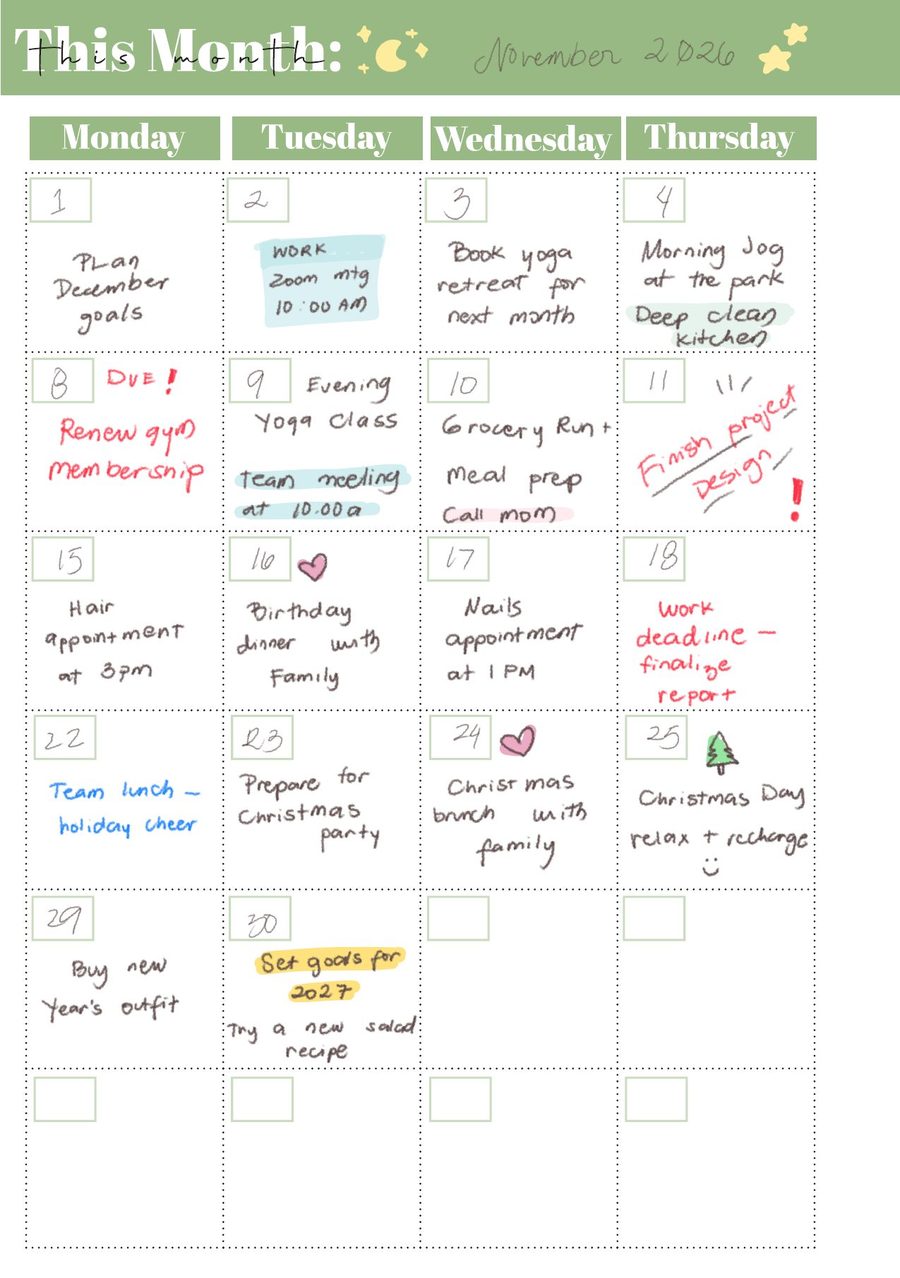 This Month:
this month
November 2026
Monday Tuesday Wednesday Thursday
1
Plan
December
goals
2
WORK
Zoom mtg
10:00 AM
3
Book yoga
retreat for
next month
4
Morning Jog
at the park
Deep clean
kitchen
8
DUE!
Renew gym
membership
9
Evening
Yoga Class
Team meeting
at 10.00a
10
Grocery Run +
Meal prep
Call mom
11
Finish project
Design
!
15
Hair
appointment
at 3pm
16
Birthday
dinner with
Family
17
Nails
appointment
at 1 PM
18
Work
deadline –
finalize
report
22
Team lunch –
holiday cheer
23
Prepare for
Christmas
party
24
Christmas
brunch with
family
25
Christmas Day
relax + recharge
29
Buy new
Year's outfit
30
Set goals for
2027
Try a new salad
recipe